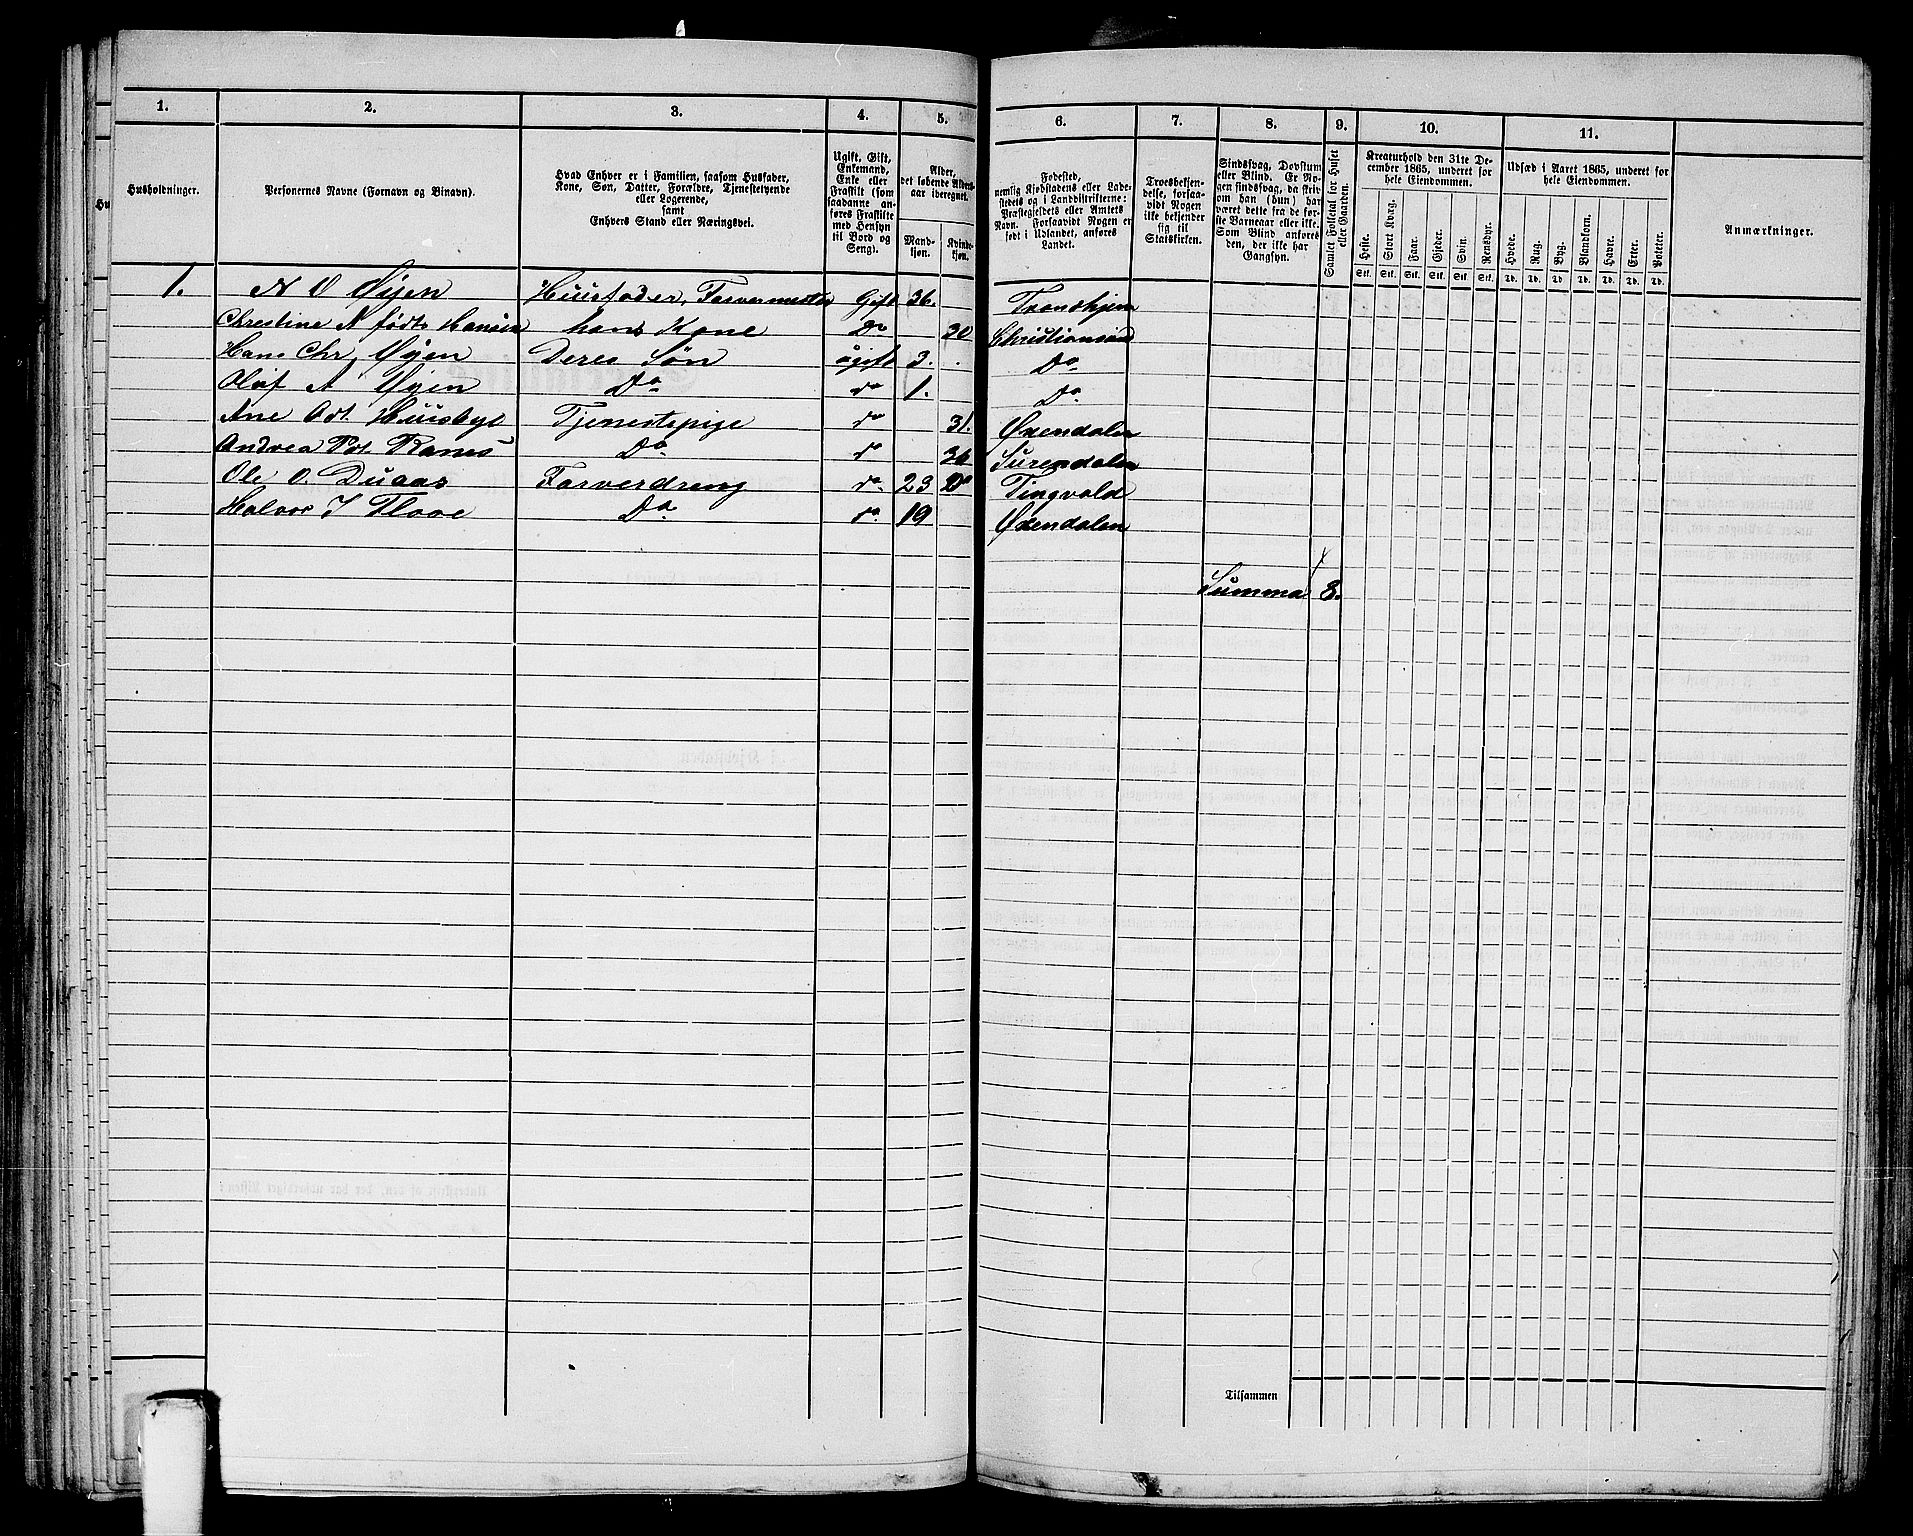 1. 2. 3. 4. 5. 6. 7. 8. 9. 10. 11.
Husholdninger.
Personernes Navne (Fornavn og Binavn).
Hvad Enhver er i Familien, saasom Husfader,
Kone, Søn, Datter, Forældre, Tjenestetyende
eller Logerende,
samt
Enhvers Stand eller Næringsvei.
Ugift, Gift,
Enkemand,
Enke eller
Fraskilt (som
saadanne an-
føres Fraskilte
med Hensyn
til Bord og
Seng).
Alder,
det løbende Alders-
aar iberegnet.
Mand-
kjøn.
Kvinde-
kjøn.
Fødested,
nemlig Kjøbstadens eller Lade-
stedets og i Landdistrikterne:
Præstegjeldets eller Amtets
Navn. Forsaavidt Nogen er
født i Udlandet, anføres
Landet.
Troesbekjen-
delse, forsaa-
vidt Nogen
ikke bekjender
sig til
Statskirken.
Sindssvag, Døvstum
eller Blind. Er No-
gen sindssvag, da skriv
om han (hun) har
været dette fra de før-
ste Barneaar eller ikke.
Som Blind anføres
den, der ikke har
Gangsyn.
Samlet Folketal for Huset
eller Gaarden.
Kreaturhold den 31te De-
cember 1865, underet for
hele Eiendommen.
Heste. Stort Kvæg. Faar. Gjeder. Svin. Rensdyr.
Stk. Stk. Stk. Stk. Stk. Stk.
Udsæd i Aaret 1865, underet for
hele Eiendommen.
Hvede. Rug. Byg. Blandkorn. Havre. Erter. Poteter.
Td. Td. Td. Td. Td. Td. Td.
Anmærkninger.
1. N O Øyen Huusfader, Farvermester Gift 36. Trondhjem
Chrestine N født Hansen hans Kone Do 30 Christiansund
Hans Chr. Øyen Deres Søn ugift 3. Do
Oluf N Øyen Do do 1. Do.
Ane Odt. Huusbye Tjenestepige do 31. Øxendalen
Andrea Pdt. Ranes Do. do 36 Surendalen
Ole O. Duaas Farverdreng do. 23 Do Tingvold
Halvor I Floe Do. do. 19 Øxendalen
Summa 8.
Tilsammen